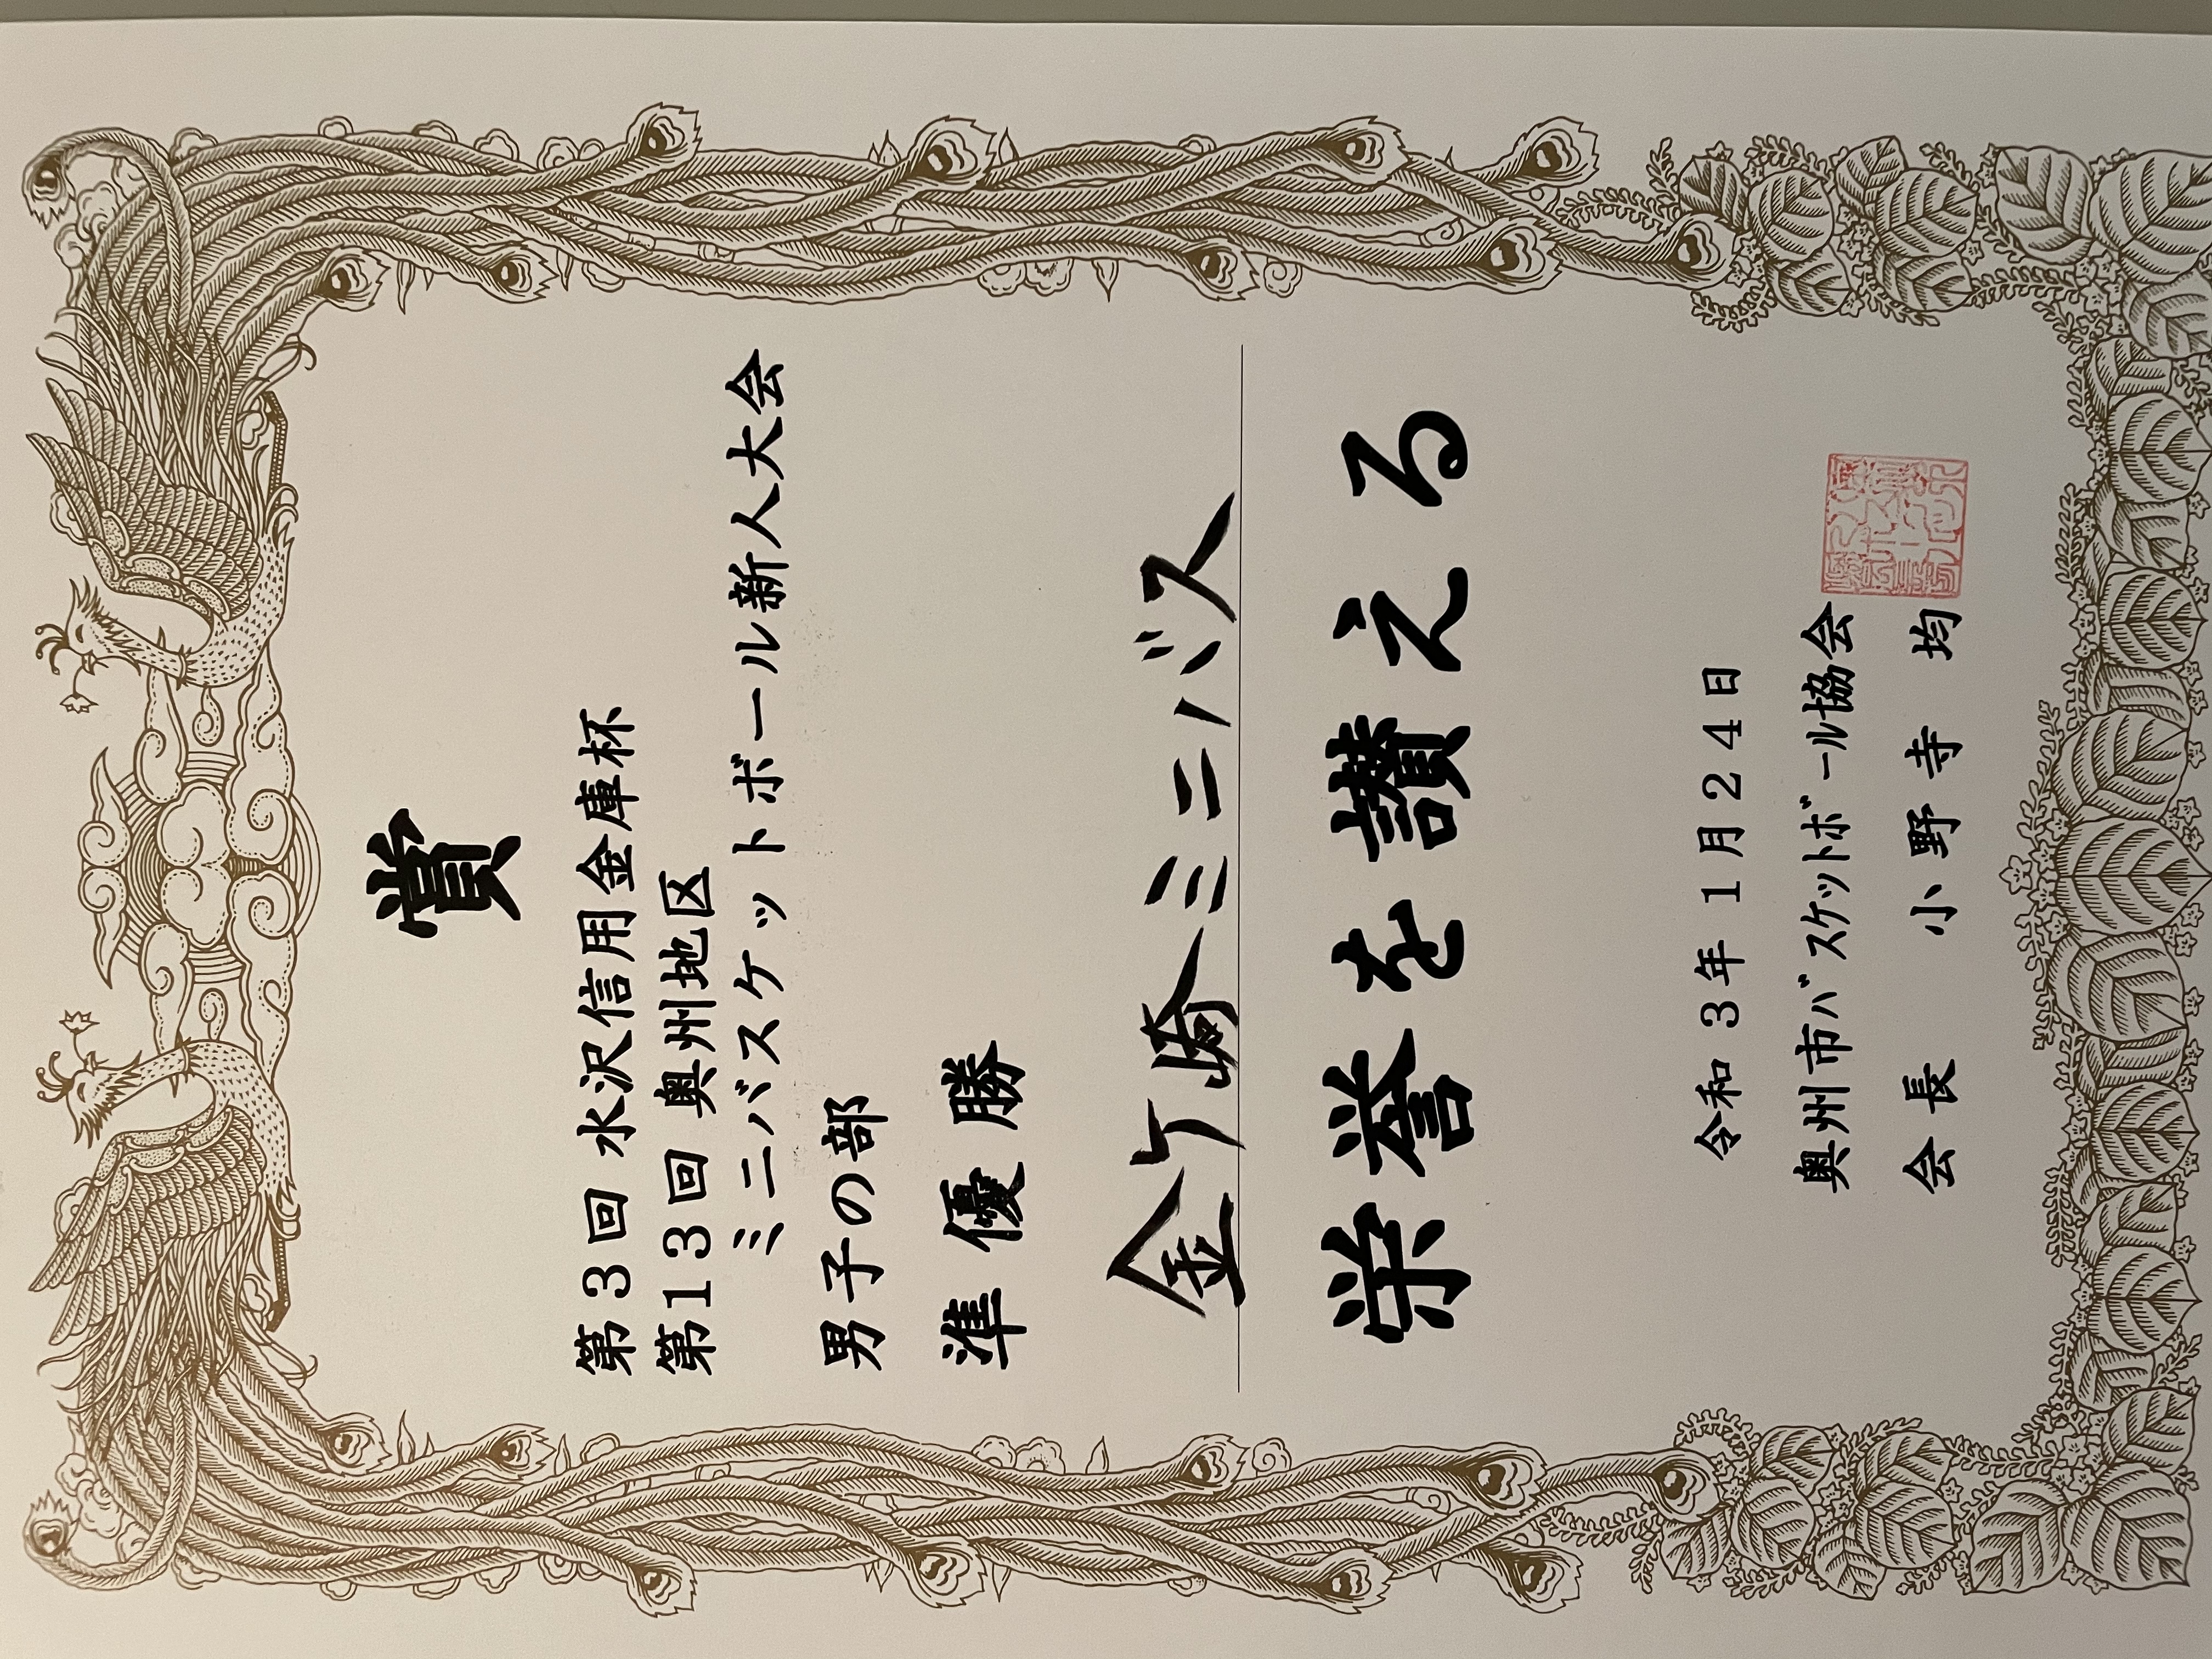 賞
第３回 水沢信用金庫杯
第13回 奥州地区
ミニバスケットボール新人大会
男子の部
準優勝
金ケ崎ミニバス
栄誉を讃える
令和 ３年 １月２４日
奥州市ﾊﾞｽｹｯﾄﾎﾞｰﾙ協会
会長 小野寺 均